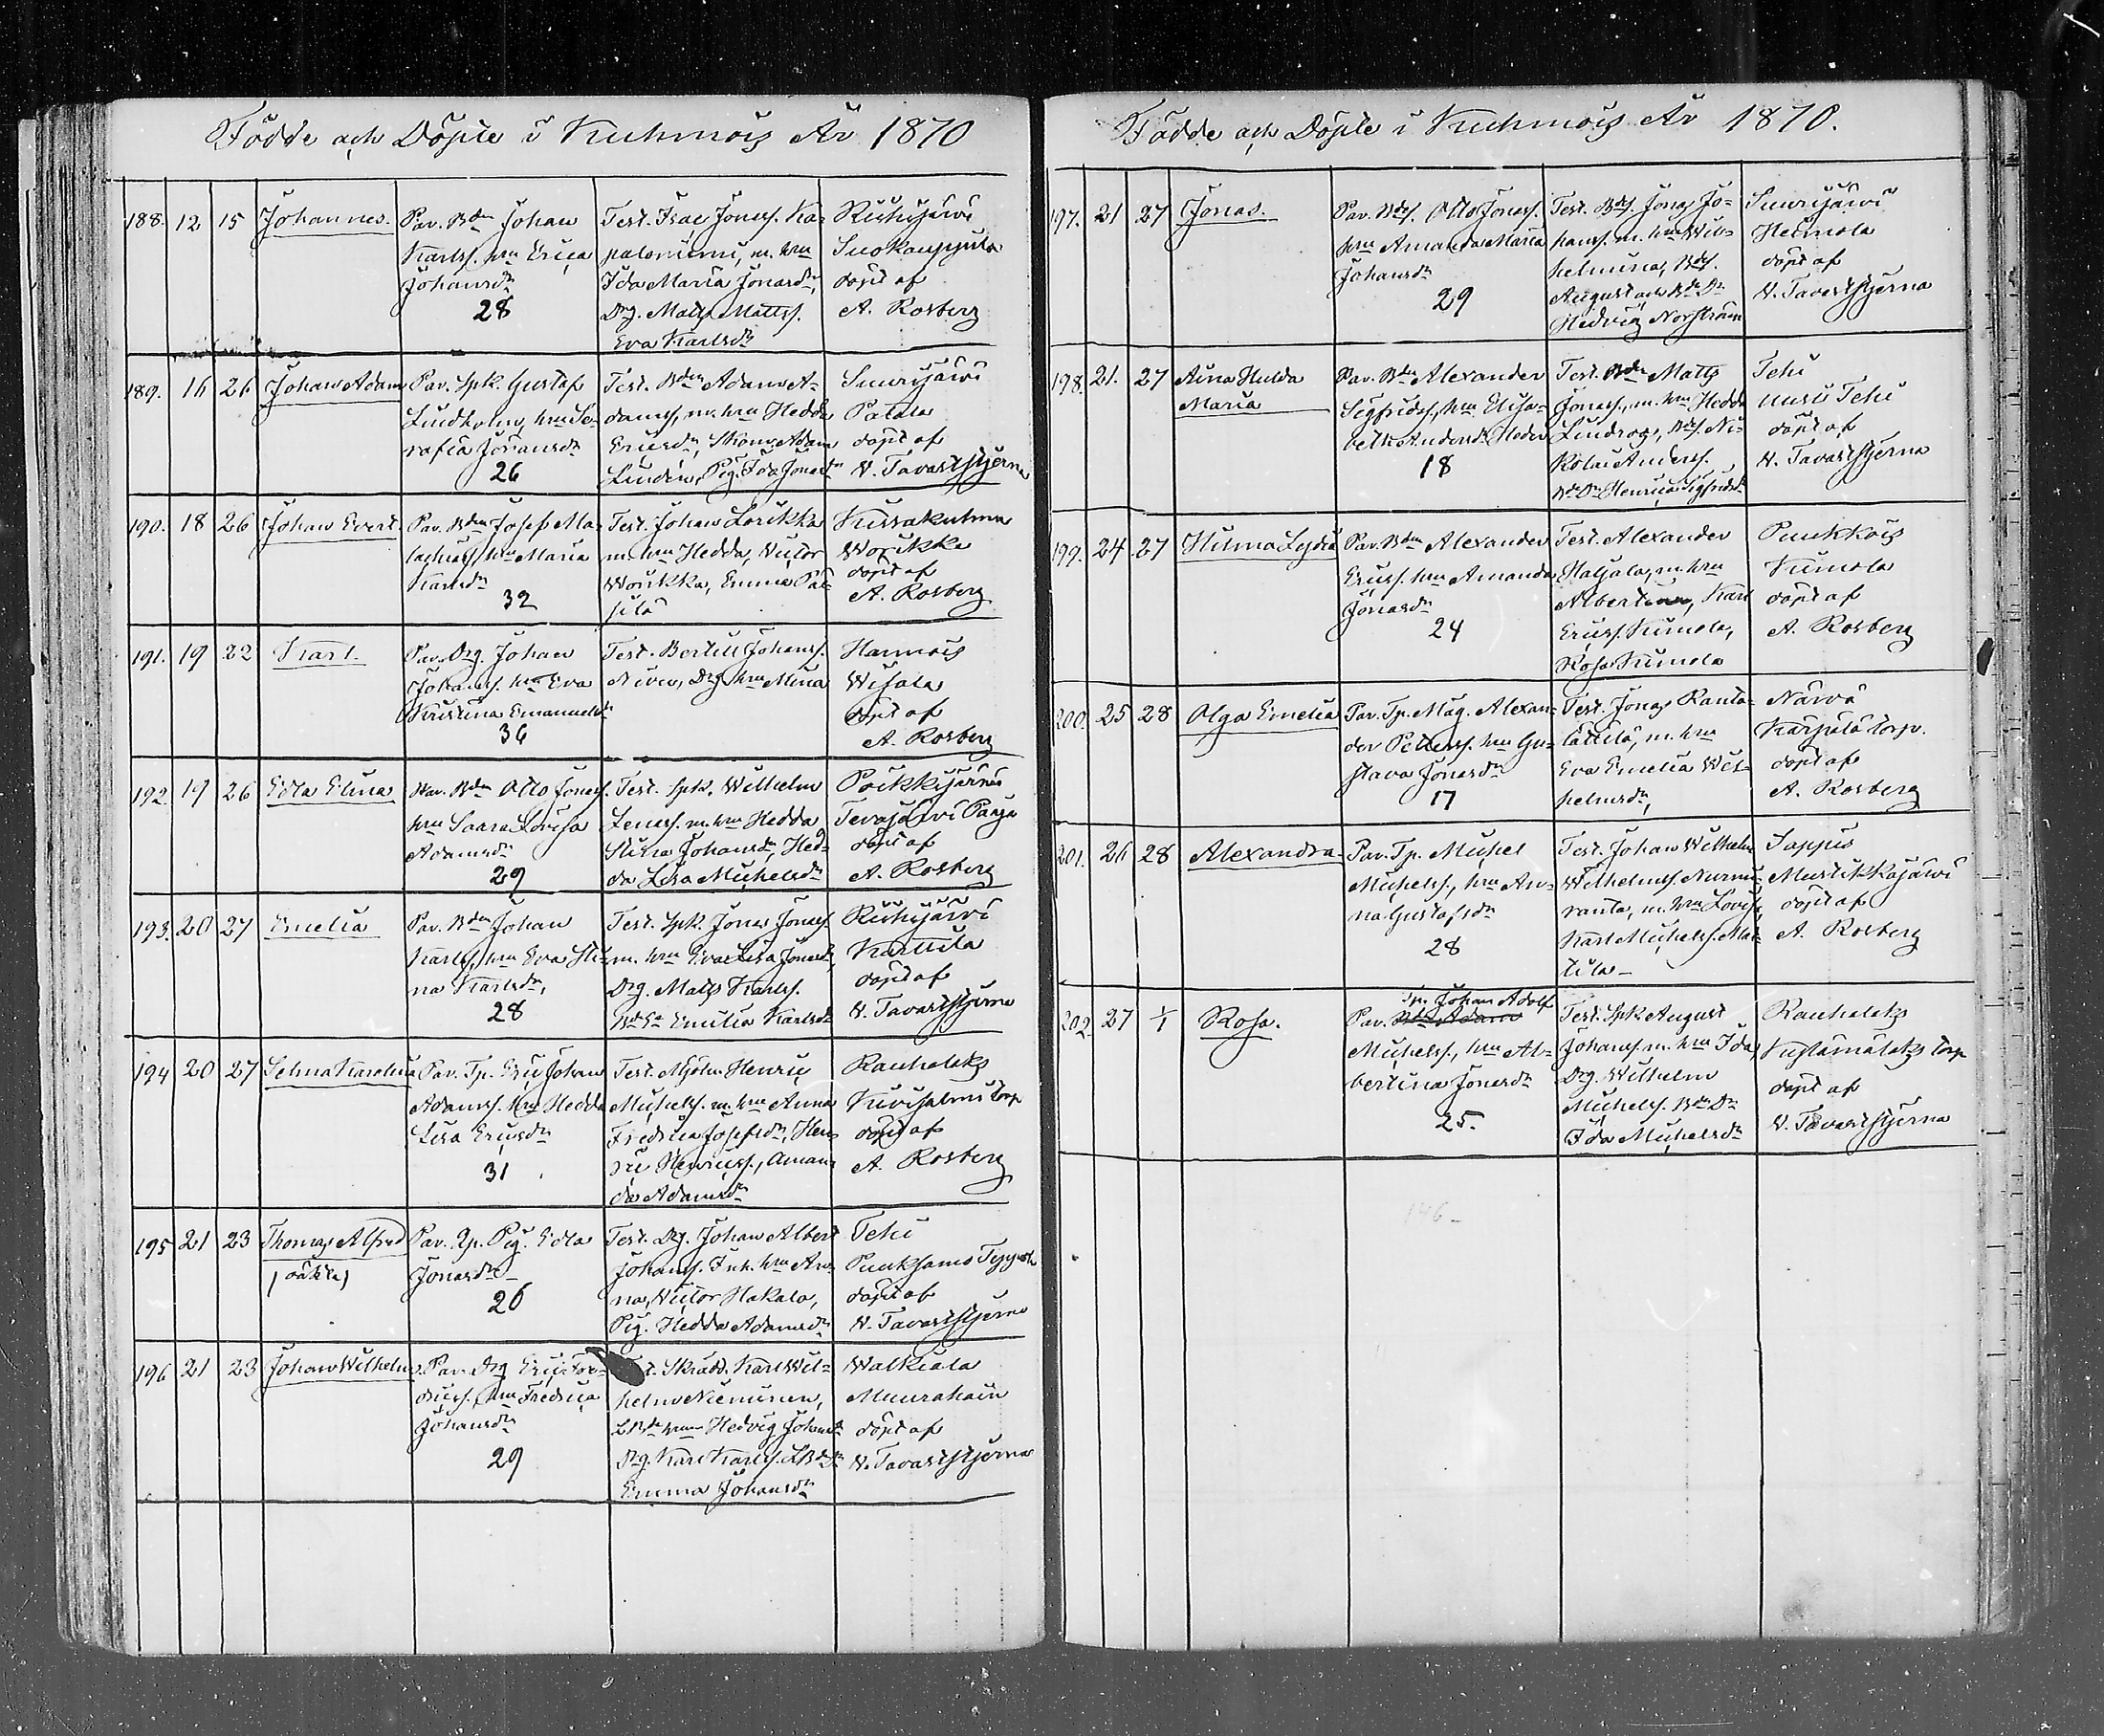 Födde och Döpte i Kuhmois År 1870
188. 12 15 Johannes.
Par. Bdn Johan
Karlss. hru Erica
Johansdr
28
Test. Isac Jonass. Ka-
paloniemi, m. hru
Ida Maria Jonasdr,
Drg. Matts Mattss.
Eva Karlsdr
Ruhijärvi
Suokauppila
döpt af
A. Rosberg
189. 16 26 Johan Adam
Par. Spk. Gustaf
Lindholm, hru Se-
rafia Göransdr
26
Test. Bdn Adam A-
damss, m. hru Hedda
Ericsdr, Skom. Adam
Linden, Pig. Ida Jonasdr
Suurijärvi
Patala
döpt af
N. Tavaststjerna
190. 18 26 Johan Evert.
Par. Bdn Josef Ma-
lachiass, hru Maria
Karlsdr
32
Test. Johan
m. hru Hedda, Victor
Worikka, Emma Pä-
jilä
Kissakulma
Worikka
döpt af
A. Rosberg
191. 19 22 Karl.
Par. Drg. Johan
Johanss. hru Eva
Kristina Emanuelsdr
36
Test. Bertill Johanss.
Drg. hru Mina
Harmois
Wihala
döpt af
A. Rosberg
192. 19 26 Edla Elina
Par. Bdn Otto Jonass.
hru Saara Lovisa
Adamsdr
29
Test. Spk. Wilhelm
m. hru Hedda
Stina Johansdr, Hed-
da Lisa Michelsdr
Poikkijärvi
Tevajärvi Paaja
döpt af
A. Rosberg
193. 20 27 Emelia
Par. Bdn Johan
Karlss, hru Eva Sti-
na Karlsdr,
28
Test. Spk. Jonas Jonass.
m. hru Eva Lisa Jonasdr,
Drg. Matts Karlss.
Emilia Karlsdr
Ruhijärvi
Karttila
döpt af
N. Tavaststjerna
194 20 27 Selma Karolina
Par. Tp. Eric Johan
Adamss. hru Hedda
Lisa Ericsdr
31
Test. Mjöln. Henric
Michelss. m. hru Anna
Fredrica Josefsdr, Hen-
ric Henricss., Aman-
da Adamsdr
Rauhalaks
Kivisalmi torp
döpt af
A. Rosberg
195 21 23 Thomas Alfred
/ oäkta /
Par. Pig. Edla
Jonasdr
26
Test. Drg. Johan Albert
Johanss. Inh. hru An-
na, Victor Hakala,
Pig. Hedda Adamsdr
Tehi
Puuksamo
döpt af
N. Tavaststjerna
196 21 23 Johan Wilhelm
Par. Drg Eric Fre-
dricss. hru Fredrica
Johansdr
29
Skrädd. Karl Wil-
helm Nieminen,
Hedvig Johansdr
Drg. Karl Karlss.
Emma Johansdr
Walkiala
Muurahain
döpt af
N. Tavaststjerna
Födde och Döpte i Kuhmois År 1870.
197. 21 27 Jonas.
Par. Bds. Otto Jonass.
hru Amanda Maria
Johansdr
29
Test. Bds. Jonas Jo-
hanss. m. hru Wil-
helmina, Bds.
August och Bds Dr
Hedvig Norström
Suurijärvi
Heimola
döpt af
N. Tavaststjerna
198. 21. 27 Aina Hulda
Maria
Par. Bdn Alexander
Sigfridss., hru Elisa-
beth Andersdr Heder
18
Test. Bdn Matts
Jonass., m. hru Hedda
Lindroos, Bds. Ni-
kolai Anderss.
Bds Dr Henrica Sigfridsdr
Tehi
Uusi Tehi
döpt af
N. Tavaststjerna
199. 24 27 Hilma Lydia
Par. Bdn Alexander
Ericss. hru Amanda
Jonasdr
24
Test. Alexander
Haljala, m. hru
Albertina, Karl
Ericss. Kumola,
Rosa Kumola
Puukkois
Kumola
döpt af
A. Rosberg
200. 25 28 Olga Emelia
Par. Tp. Mag. Alexan-
der Petterss. hru Gu-
stava Jonasdr
17
Test. Jonas Ranta-
lättilä, m. hru
Eva Emelia Wil-
helmsdr,
Närvä
Kärpälä torp.
döpt af
A. Rosberg
201. 26 28 Alexandra
Par. Tp. Michel
Michelss., hru An-
na Gustafsdr
28
Test. Johan Wilhelm
Wilhelmss. Nurmi-
ranta, m. hru Lovisa,
Karl Michelss. Mat-
tila
Sappis
Mustikkajärvi
döpt af
A. Rosberg
202 27 1/1 Rosa.
Tp. Johan Adolf
Par. Bdn Adam
Michelss., hru Al-
bertina Jonasdr
25.
Test. Spk August
Johanss m. hru Ida,
Drg. Wilhelm
Michelss. Bds Dr
Ida Michelsdr
Rauhalaks
torp
döpt af
N. Tavaststjerna
146